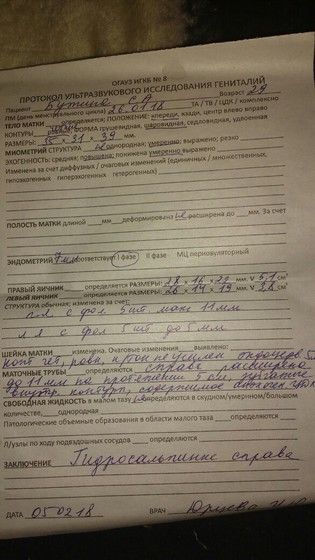 ОГАУЗ ИГКБ № 8
ПРОТОКОЛ УЛЬТРАЗВУКОВОГО ИССЛЕДОВАНИЯ ГЕНИТАЛИЙ
Пациент С А Возраст 29
ПМ (день менстр. цикла) 26.01.18 ТА / ТВ / ЦДК / комплексно
ТЕЛО МАТКИ определяется; ПОЛОЖЕНИЕ: кпереди, кзади, центр влево вправо
КОНТУРЫ ФОРМА грушевидная, шаровидная, седловидная, удлиненная
РАЗМЕРЫ: 35 х 31 х 39 мм.
МИОМЕТРИЙ СТРУКТУРА не однородная; умеренно; выражено; резко
ЭХОГЕННОСТЬ: средняя; повышена; понижена умеренно выражено
Изменена за счет диффузных / очаговых изменений (единичных / множественных,
гипоэхогенных / гиперэхогенных гетерогенных)
ПОЛОСТЬ МАТКИ длиной мм деформирована не расширена до мм. За счет
ЭНДОМЕТРИЙ 7 мм соответствует I фазе II фазе МЦ периовуляторный
ПРАВЫЙ ЯИЧНИК определяется РАЗМЕРЫ 28 х 16 х 22 мм. V 5,1 см³
ЛЕВЫЙ ЯИЧНИК определяется РАЗМЕРЫ 26 х 14 х 19 мм. V 3,8 см³
Структура обычная; изменена за счет:
п.я с фол 5 шт. мах 11 мм
л я с фол 5 шт до 5 мм
ШЕЙКА МАТКИ изменена. Очаговые изменения выявлено:
МАТОЧНЫЕ ТРУБЫ определяются справа расширена
до 11 мм на протяжении 5 см,
СВОБОДНАЯ ЖИДКОСТЬ в малом тазу не определяется в скудном/умеренном/большом
количестве, однородная
Патологические объемные образования в области малого таза определяются
Л/узлы по ходу подвздошных сосудов определяются
ЗАКЛЮЧЕНИЕ Гидросальпинкс справа
ДАТА 05.02.18 ВРАЧ